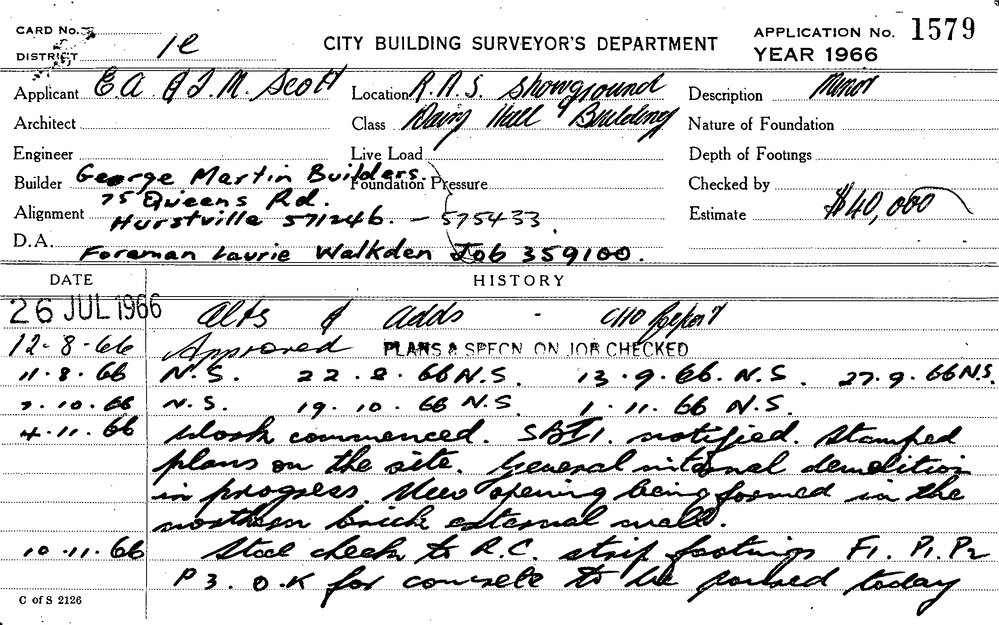 CARD No.
DISTRICT 1e
CITY BUILDING SURVEYOR'S DEPARTMENT
APPLICATION No. 1579
YEAR 1966
Applicant E.A. & J.M. Scott
Location R.A.S. Showground
Description Minor
Architect
Class Dairy Hall & Building
Nature of Foundation
Engineer
Live Load
Depth of Footings
Builder George Martin Builders.
Foundation Pressure
Checked by
75 Queens Rd.
Alignment Hurstville 571246. - 575433.
Estimate $40,000
D.A. Foreman Laurie Walkden Job 359100.
DATE HISTORY
26 JUL 1966 Alts & Adds - CHO Report
12-8-66 Approved PLANS & SPECN ON JOB CHECKED
11.8.66 N.S. 22.8.66 N.S. 13.9.66. N.S. 27.9.66 N.S.
7.10.66 N.S. 19.10.66 N.S. 1.11.66 N.S.
4.11.66 Work commenced. notified. Stamped
plans on the site. General internal demolition
in progress. New opening being formed in the
northern brick external wall.
10.11.66 Steel check to R.C. strip footings F1. P1. P2
P3. O.K for concrete to be poured today
C of S 2126